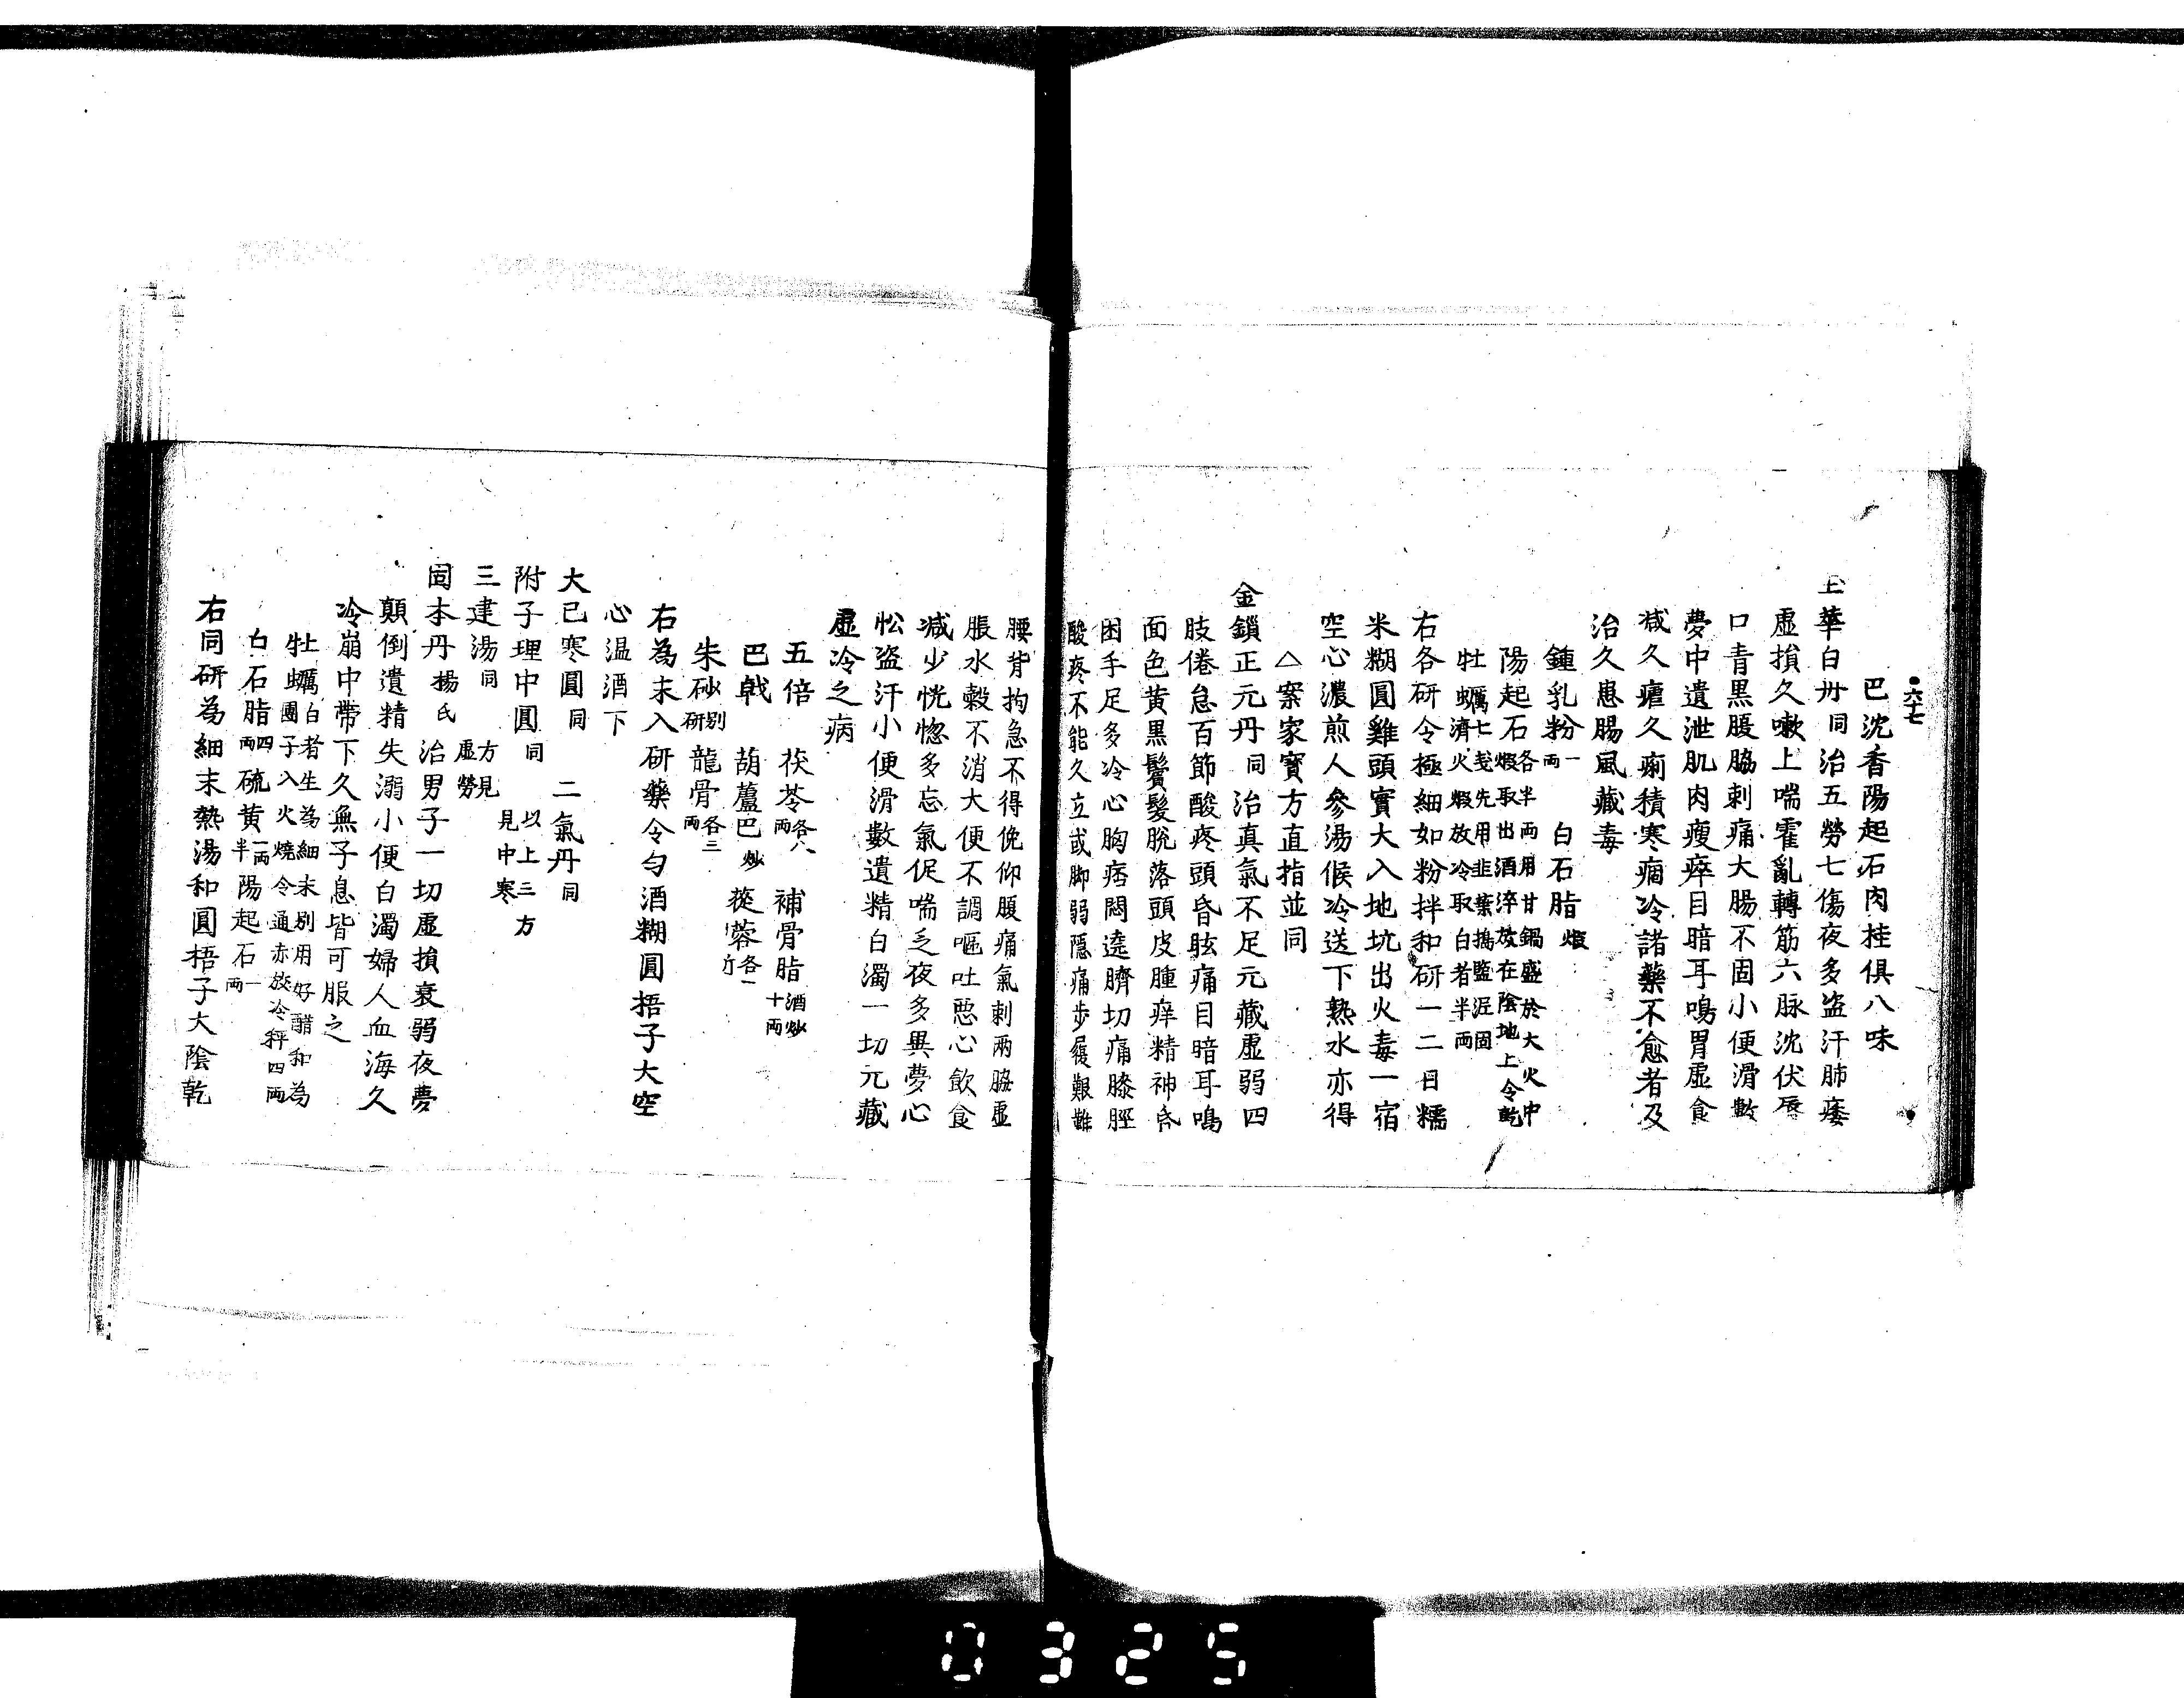 六七
巴沈香陽起石肉桂俱八味
上華白丹同治五勞七傷夜多盗汗肺痿
虛損久嗽上喘霍亂轉筋六脉沈伏唇
口青黒腹脇刺痛大腸不固小便滑數
夢中遺泄肌肉瘦瘁目暗耳鳴胃虛食
减久瘧久痢積寒痼冷諸藥不愈者及
治久患腸風藏毒
鍾乳粉一兩 白石脂煅
陽起石各半兩用甘鍋盛於大火中煅取出酒淬放在陰地上令乾
牡蠣七㦮先用韭葉搗監泥固濟火煅放冷取白者半兩
右各研令極細如粉拌和研一二日糯
米糊圓雞頭實大入地坑出火毒一宿
空心濃煎人參湯候冷送下熟水亦得
△寮家寳方直指並同
金鎖正元丹同治真氣不足元藏虛弱四
肢倦怠百節酸疼頭昏眩痛目暗耳鳴
面色黄黒鬢髮脱落頭皮腫痒精神昏
困手足多冷心胸痞悶遶臍切痛膝脛
酸疼不能久立或脚弱隱痛步履艱難
腰背拘急不得俛仰腹痛氣刺兩脇虛
脹水穀不消大便不調嘔吐惡心飲食
减少恍惚多忘氣促喘乏夜多異夢心
忪盗汗小便滑數遺精白濁一切元藏
虛冷之病
五倍 茯苓各八兩 補骨脂酒炒十兩
巴戟 葫蘆巴炒 蓯蓉各一斤
朱砂别研 龍骨各三兩
右為末入研藥令匀酒糊圓捂子大空
心温酒下
大已寒圓同 二氣丹同
附子理中圓同 以上三方見中寒
三建湯同 方見虛勞
固本丹楊氏 治男子一切虛損衰弱夜夢
顛倒遺精失溺小便白濁婦人血海久
冷崩中帶下久無子息皆可服之
牡蠣白者生為細末别用好醋和為團子入火燒令通赤放冷秤四兩
白石脂四兩 硫黄一兩半 陽起石一兩
右同研為細末熱湯和圓梧子大陰乾
0325